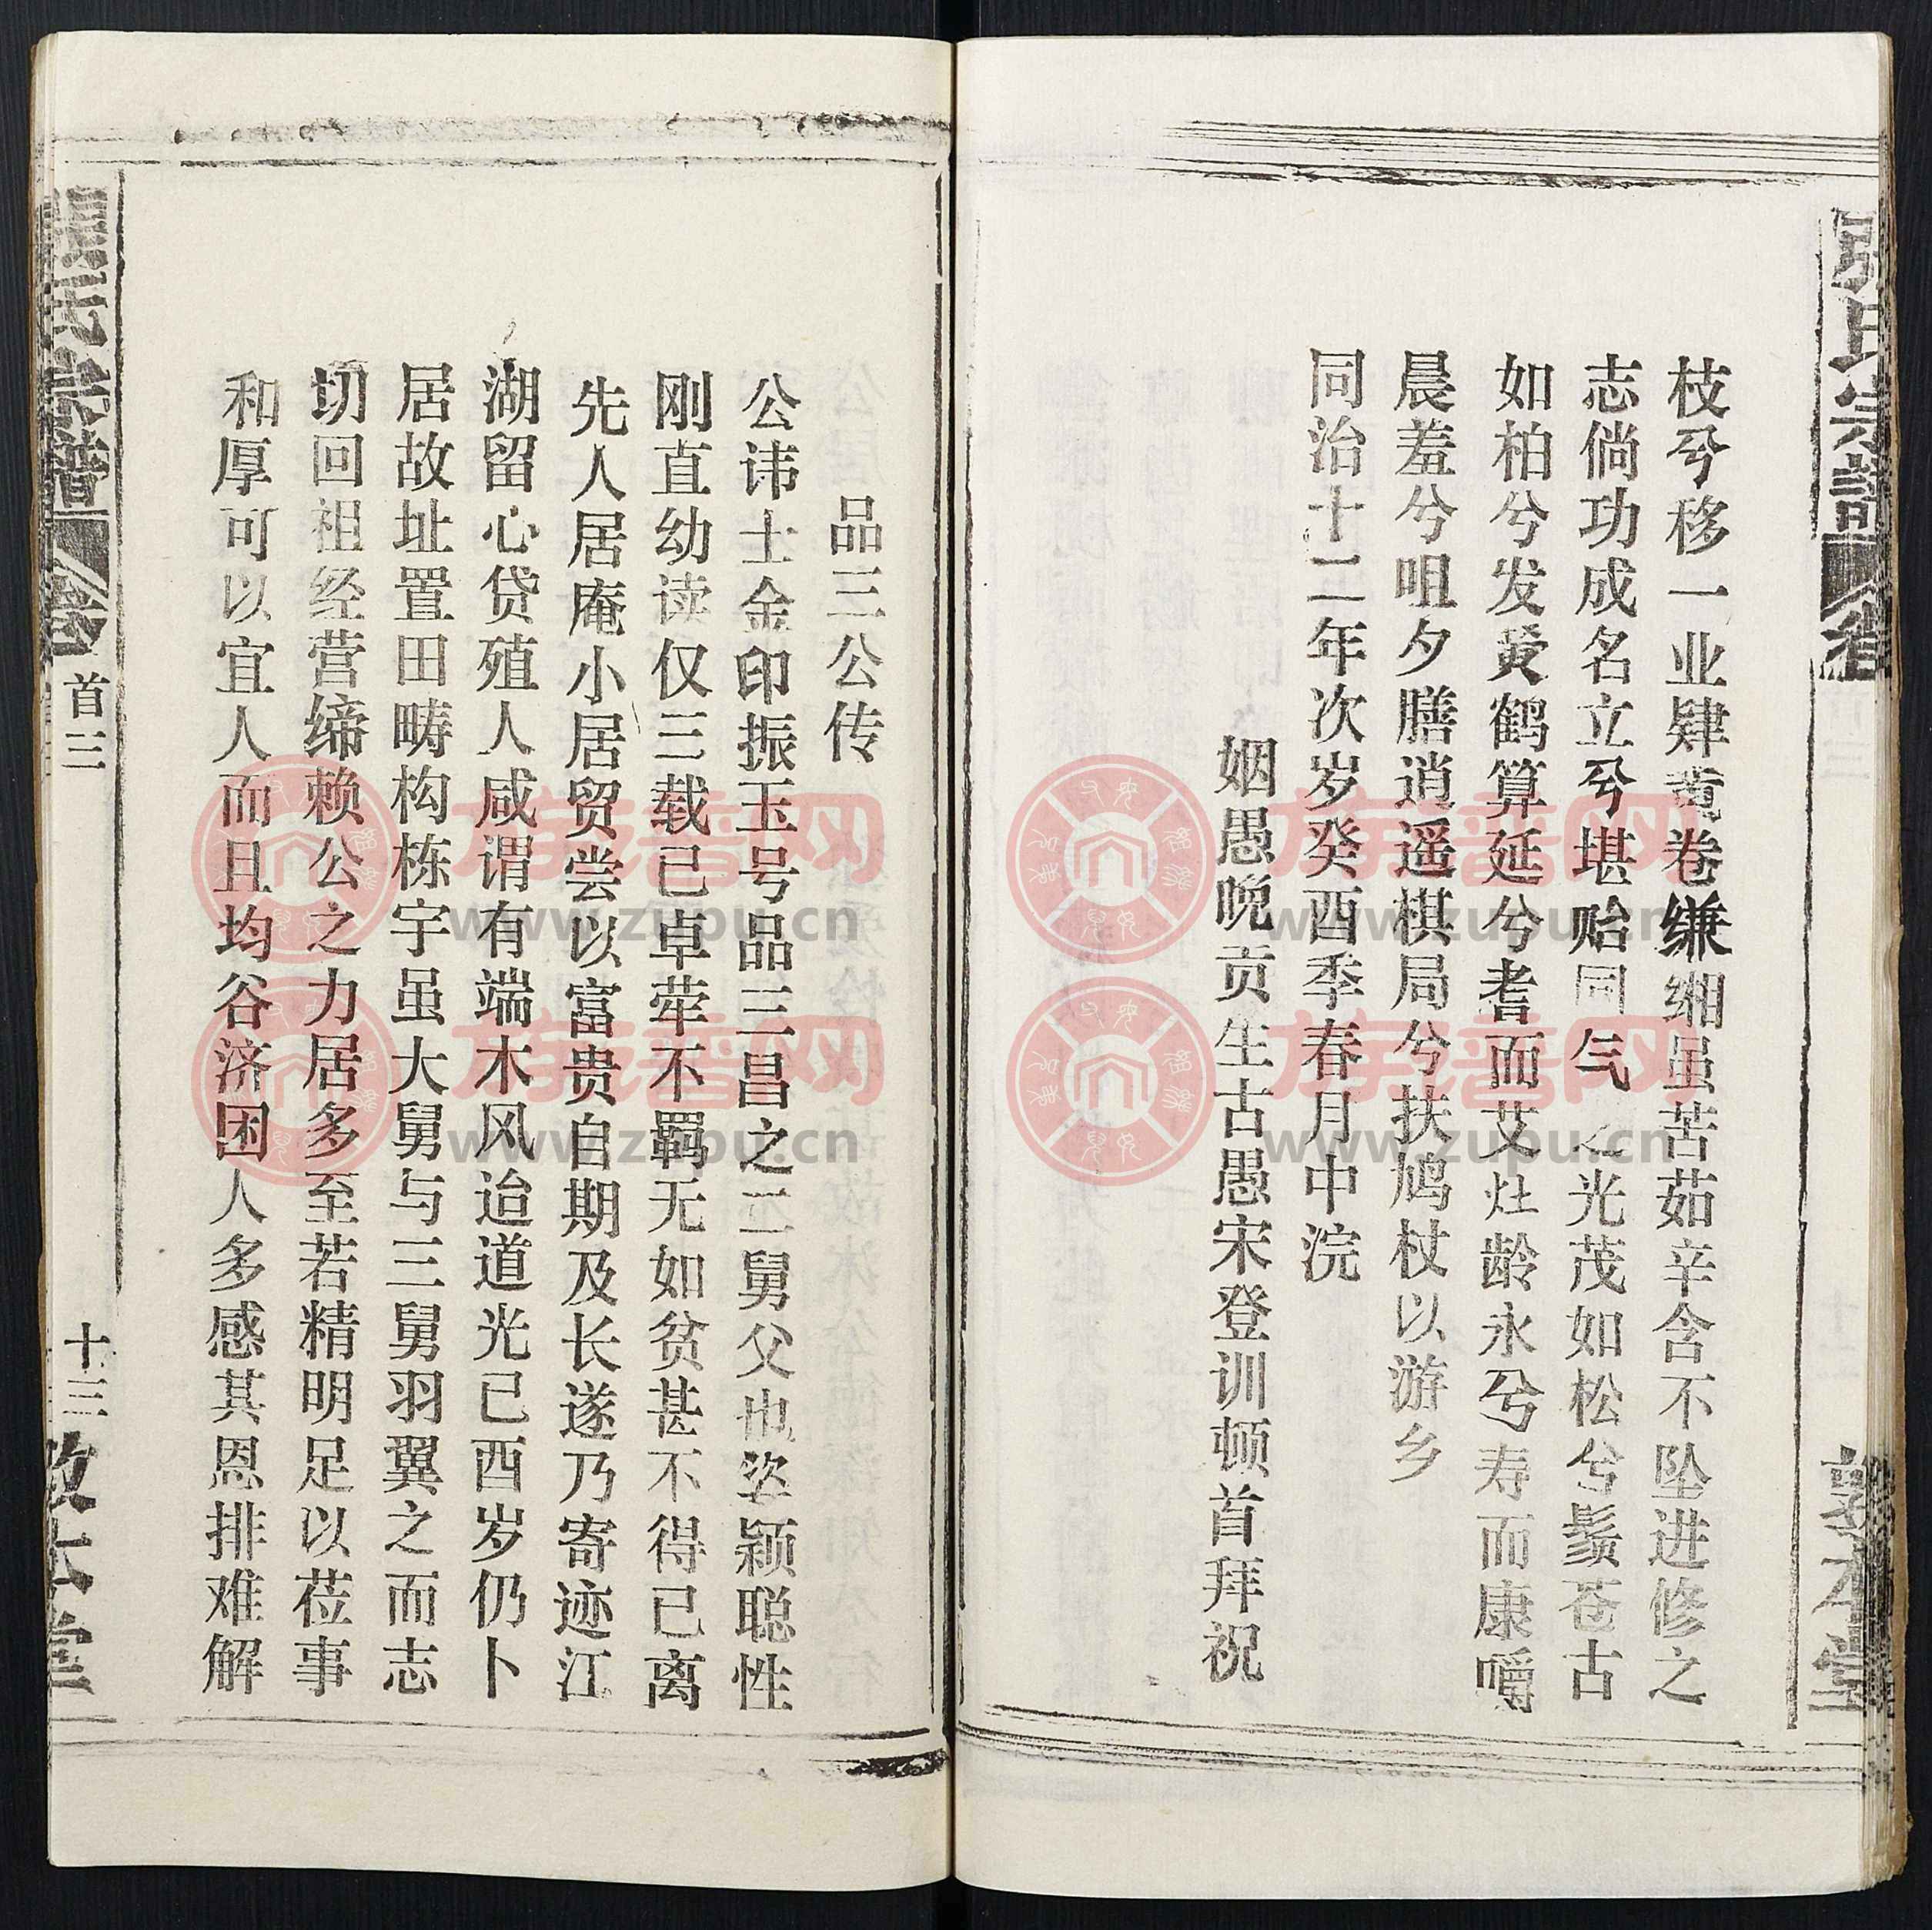 张氏宗譜
卷
敦本堂
枝兮移一业肄黄卷缣缃虽苦茹辛含不坠进修之
志倘功成名立兮堪贻同气之光茂如松兮鬓苍古
如柏兮发黄鹤算延兮耆而艾灶龄永兮寿而康嚼
晨羞兮咀夕膳逍遥棋局兮扶鸠杖以游乡
同治十二年次岁癸酉季春月中浣
姻愚晚贡生古愚宋登训顿首拜祝
品三公传
公讳士金印振玉号品三昌之二舅父也姿颖聪性
刚直幼读仅三载已卓荦不羁无如贫甚不得已离
先人居庵小居贸尝以富贵自期及长遂乃寄迹江
湖留心贷殖人咸谓有端木风迨道光已酉岁仍卜
居故址置田畴构栋宇虽大舅与三舅羽翼之而志
切回祖经营缔赖公之力居多至若精明足以莅事
和厚可以宜人而且均谷济困人多感其恩排难解
张氏宗譜
卷
首三
十三
敦本堂
族谱网
www.zupu.cn
族谱网
www.zupu.cn
族谱网
www.zupu.cn
族谱网
www.zupu.cn